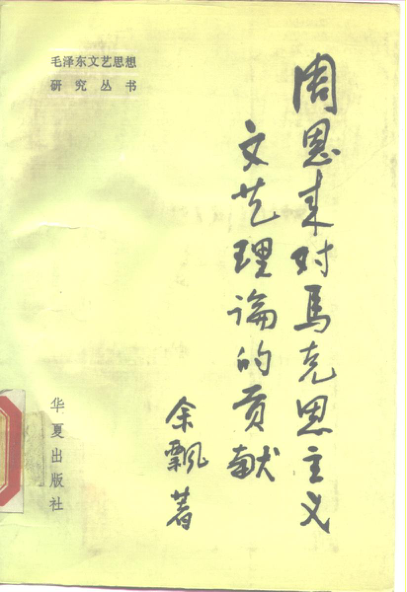 毛泽东文艺思想
研究丛书
周恩来对馬克思主义
文艺理論的贡献
余飘著
华夏出版社